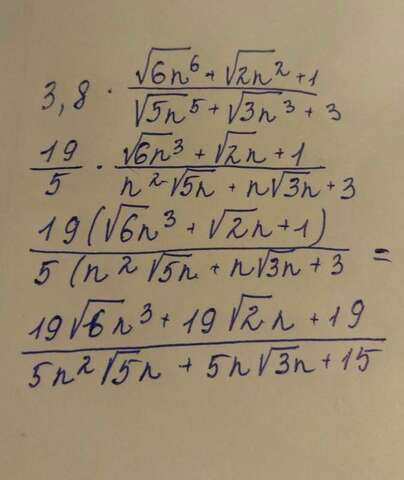 3,8 · (√6n⁶ + √2n² + 1)/(√5n⁵ + √3n³ + 3)
19/5 · (√6n³ + √2n + 1)/(n²√5n + n√3n + 3)
19(√6n³ + √2n + 1)/5(n²√5n + n√3n + 3 =
19√6n³ + 19√2n + 19/5n²√5n + 5n√3n + 15